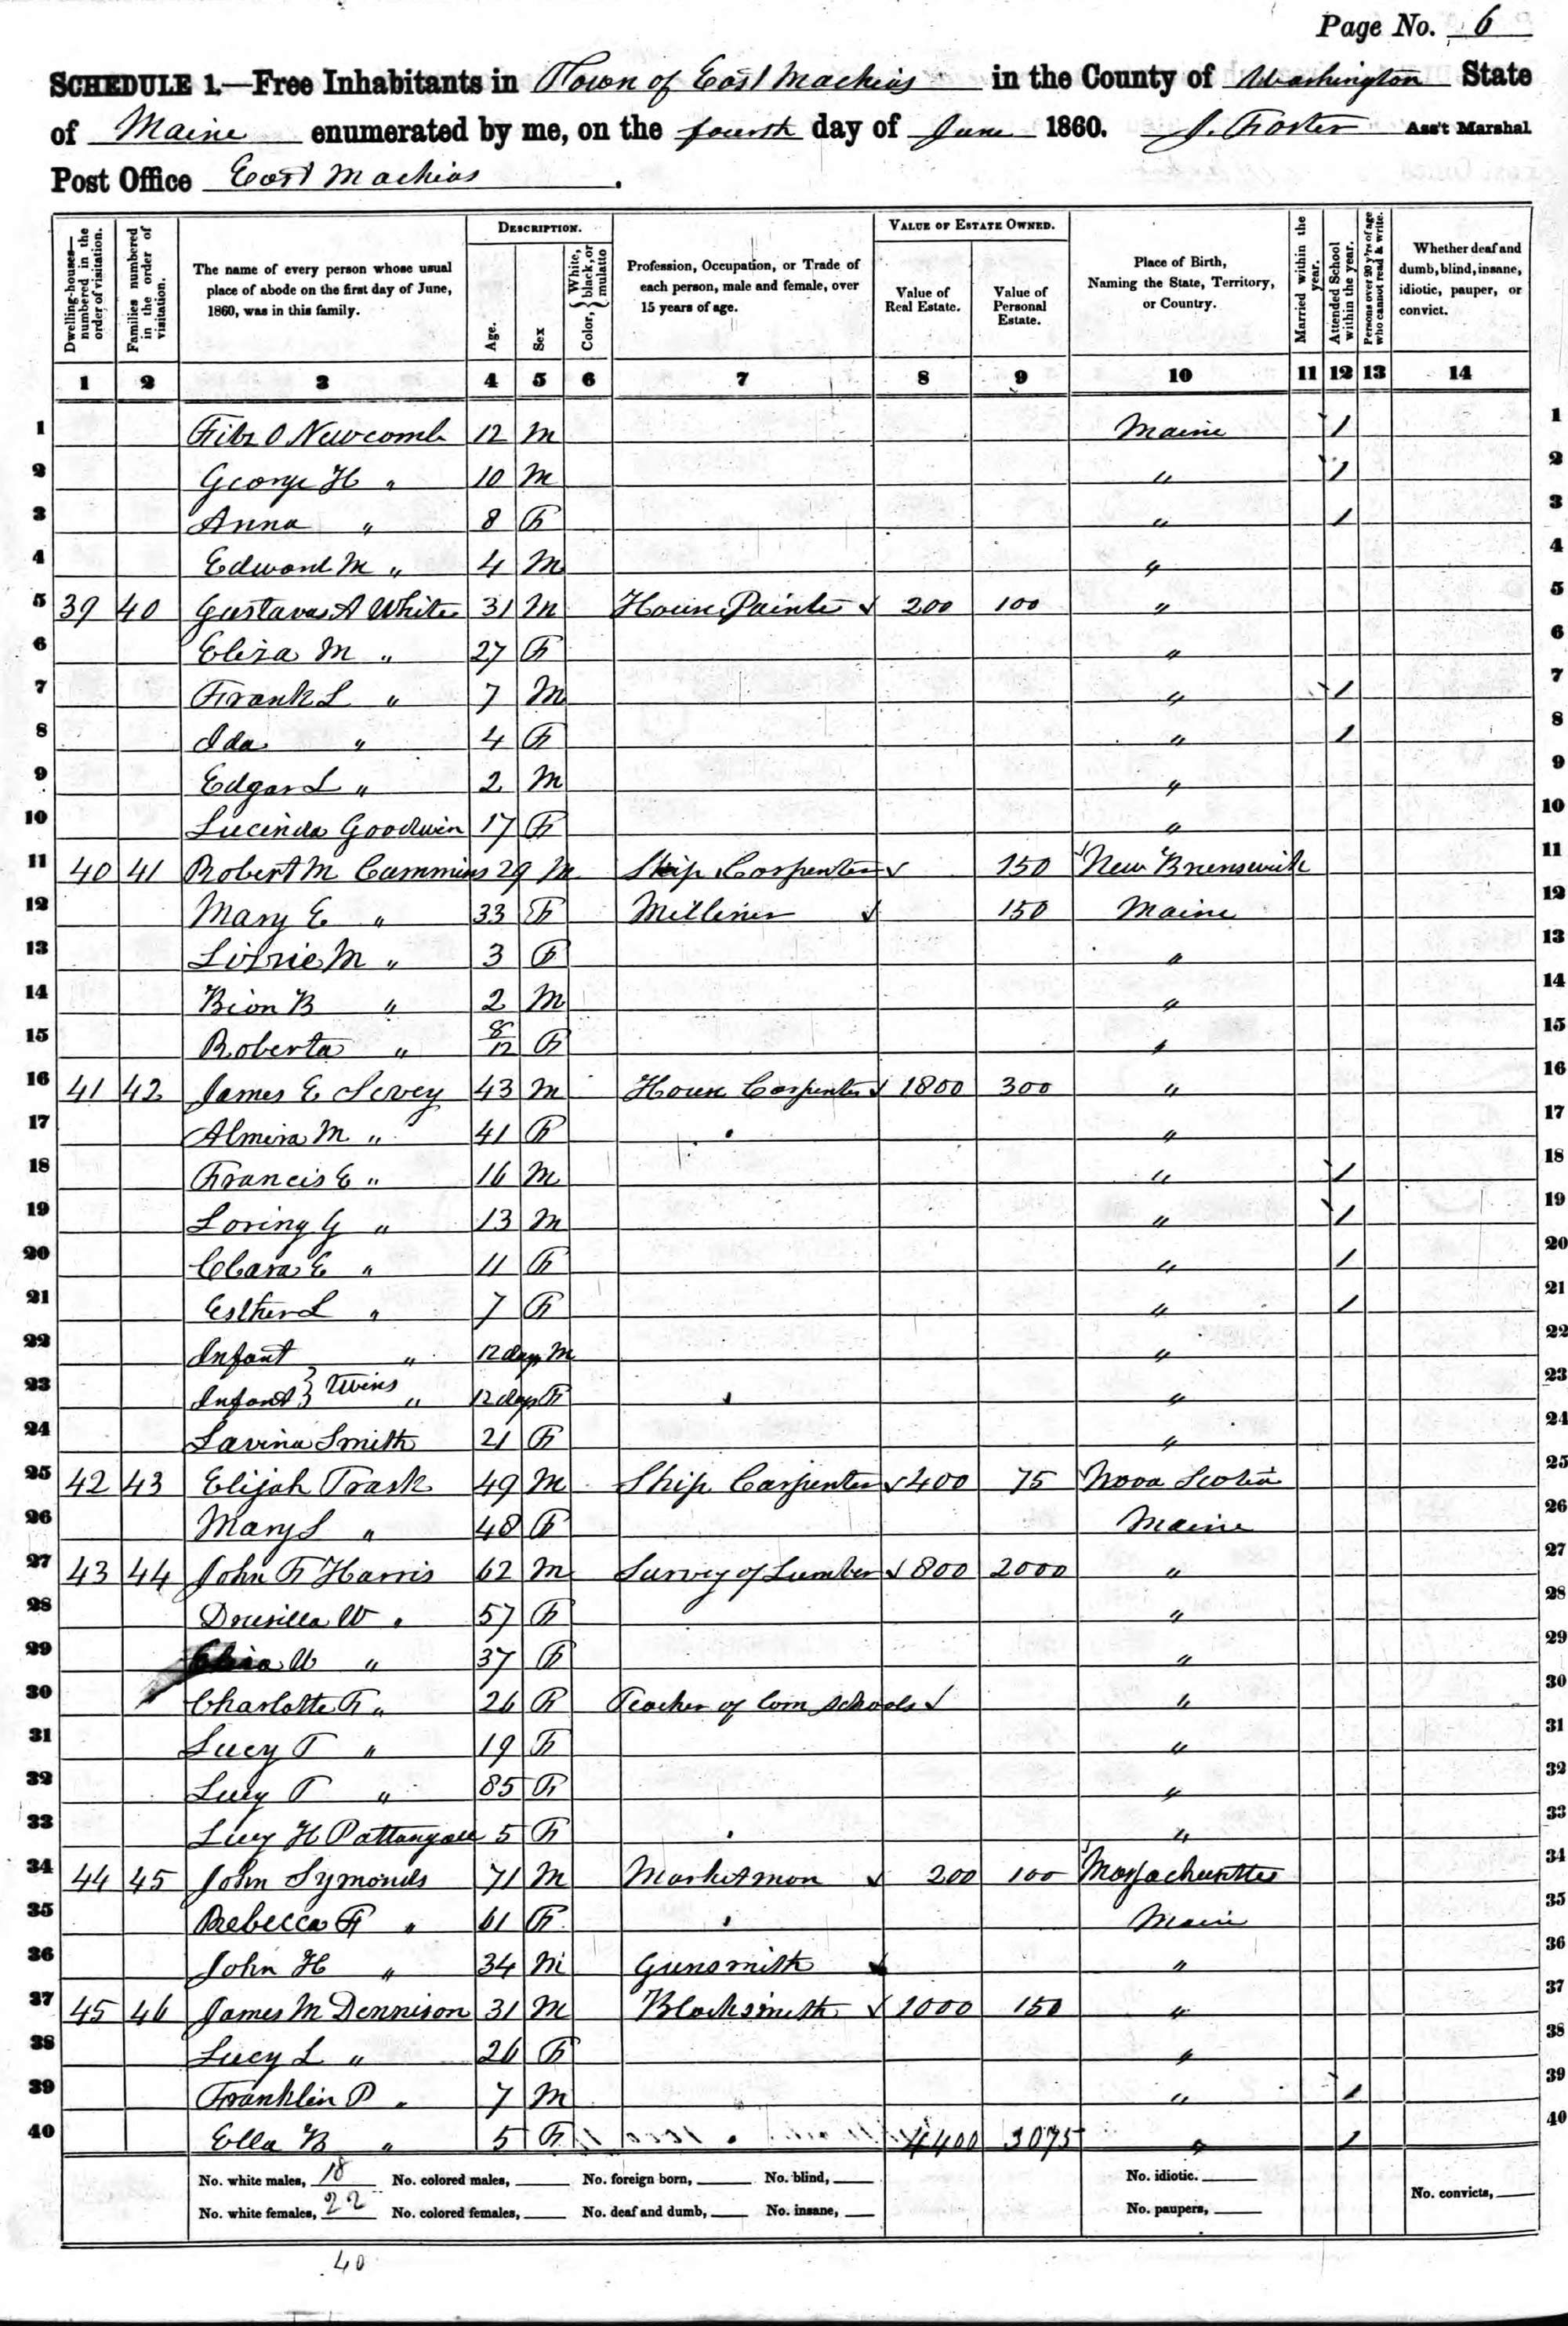 Page No. 6
SCHEDULE 1.—Free Inhabitants in Town of East Machias in the County of Washington State
of Maine enumerated by me, on the fourth day of June 1860. J. Foster Ass't Marshal
Post Office East Machias.
Dwelling-houses—numbered in the order of visitation. Families numbered in the order of visitation. The name of every person whose usual place of abode on the first day of June, 1860, was in this family. DESCRIPTION. Age. Sex Color, { White, black, or mulatto Profession, Occupation, or Trade of each person, male and female, over 15 years of age. VALUE OF ESTATE OWNED. Value of Real Estate. Value of Personal Estate. Place of Birth, Naming the State, Territory, or Country. Married within the year. Attended School within the year. Persons over 20 y'rs of age who cannot read & write. Whether deaf and dumb, blind, insane, idiotic, pauper, or convict.
1 2 3 4 5 6 7 8 9 10 11 12 13 14
1 Fitz O Newcomb 12 M Maine / 1
2 George H " 10 M " / 2
3 Anna " 8 F " / 3
4 Edward M " 4 M " 4
5 39 40 Gustavus A White 31 M House Painter ✓ 200 100 " 5
6 Eliza M " 27 F " 6
7 Frank L " 7 M " / 7
8 Ida " 4 F " / 8
9 Edgar L " 2 M " 9
10 Lucinda Goodwin 17 F " 10
11 40 41 Robert M Cammins 29 M Ship Carpenter ✓ 150 New Brunswick 11
12 Mary E " 33 F Milliner ✓ 150 Maine 12
13 Lizzie M " 3 F " 13
14 Bion B " 2 M " 14
15 Roberta " 8/12 F " 15
16 41 42 James E Sevey 43 M House Carpenter ✓ 1800 300 " 16
17 Almira M " 41 F " 17
18 Francis E " 16 M " / 18
19 Loring G " 13 M " / 19
20 Clara E " 11 F " / 20
21 Esther L " 7 F " / 21
22 Infant " 12 days M " 22
23 Infant } Twins " 12 days F " 23
24 Lavina Smith 21 F " 24
25 42 43 Elijah Trask 49 M Ship Carpenter ✓ 400 75 Nova Scotia 25
26 Mary S " 48 F Maine 26
27 43 44 John F Harris 62 M Survey of Lumber ✓ 800 2000 " 27
28 Drusilla W " 57 F " 28
29 Eliza W " 37 F " 29
30 Charlotte F " 26 F Teacher of Com Schools ✓ " 30
31 Lucy T " 19 F " 31
32 Lucy T " 85 F " 32
33 Lucy H Pattangall 5 F " 33
34 44 45 John Symonds 71 M Marketman ✓ 200 100 Massachusettes 34
35 Rebecca F " 61 F Maine 35
36 John H " 34 M Gunsmith ✓ " 36
37 45 46 James M Dennison 31 M Blacksmith ✓ 1000 150 " 37
38 Lucy L " 26 F " 38
39 Franklin P " 7 M " / 39
40 Ella B " 5 F 4400 3075 " / 40
No. white males, 18 No. colored males, No. foreign born, No. blind, No. idiotic.
No. white females, 22 No. colored females, No. deaf and dumb, No. insane, No. paupers, No. convicts,
40